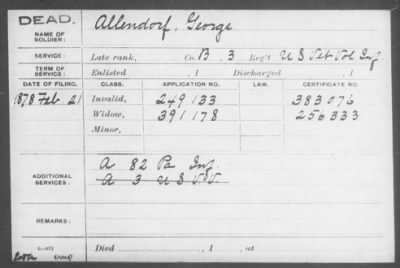 DEAD. Allendorf, George
NAME OF SOLDIER:
SERVICE: Late rank, Co. B. 3 Reg't U S Vet Vol Inf
TERM OF SERVICE: Enlisted , 1 Discharged , 1
DATE OF FILING. CLASS. APPLICATION NO. LAW. CERTIFICATE NO.
1878 Feb 21 Invalid, 249133 383076
Widow, 391178 256333
Minor,
A 82 Pa Inf.
ADDITIONAL SERVICES: A 3 U S V V
REMARKS:
6—071 Died , 1 , at